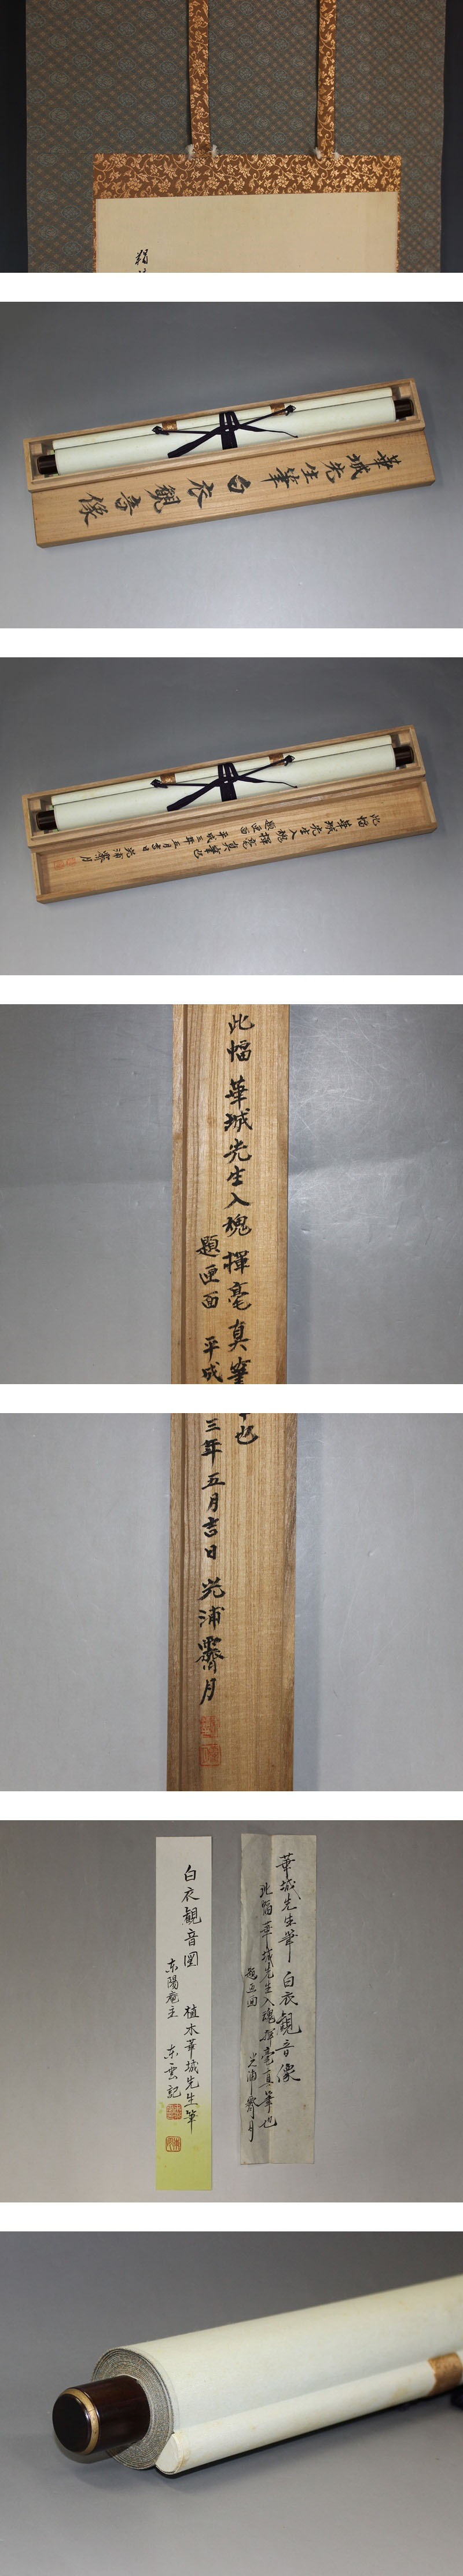 華城先生筆白衣觀音像
此幅華城先生入魂揮毫真筆也
題匣面 平成三年五月吉日 光浦霽月
此幅 華城先生入魂揮毫真筆
題匣面 平成
也
三年五月吉日 光浦霽月
華城先生筆 白衣觀音像
此幅華城先生入魂揮毫真筆也
題匣面 光浦霽月
白衣觀音圖 植木華城先生筆
东陽庵主 东雲記